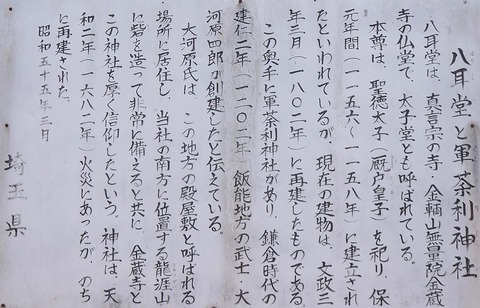 八耳堂と軍荼利神社
八耳堂は、真言宗の寺・金輞山無量院金蔵
寺の仏堂で、太子堂とも呼ばれている。
本尊は、聖徳太子（厩戸皇子）を祀り、保
元年間（一一五六～一一五八年）に建立され
たといわれているが、現在の建物は、文政三
年三月（一八〇二年）に再建したものである。
この奥手に軍荼利神社があり、鎌倉時代の
建仁二年（一二〇二年）飯能地方の武士・大
河原四郎が創建したと伝えている。
大河原氏は、この地方の殿屋敷と呼ばれる
場所に居住し、当社の南方に位置する龍涯山
に砦を造って非常に備えると共に、金蔵寺と
この神社を厚く信仰したという。神社は、天
和二年（一六八二年）火災にあったが、のち
に再建された。
昭和五十五年三月
埼玉県